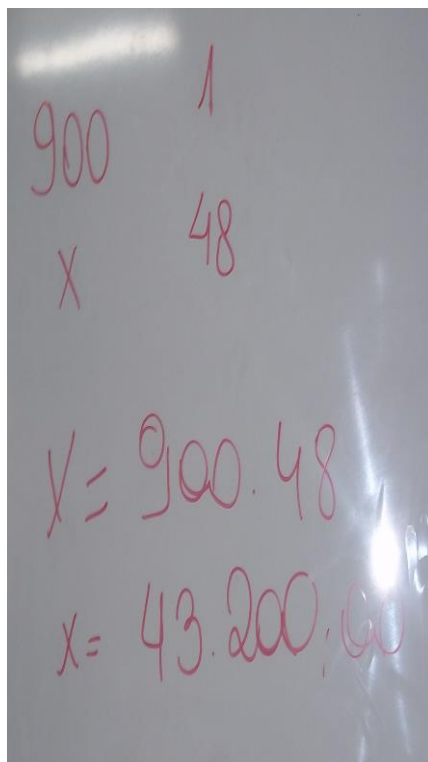 900 1
x 48
X = 900 . 48
x = 43.200,00